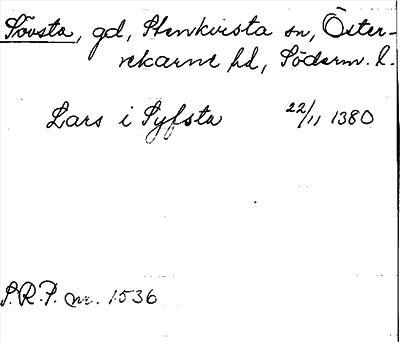 Sövsta, gd, Stenkvista sn, Öster-
rekarne hd, Söderm. l.
Lars i Syfsta 22/11 1380
S.R.P. nr. 1536